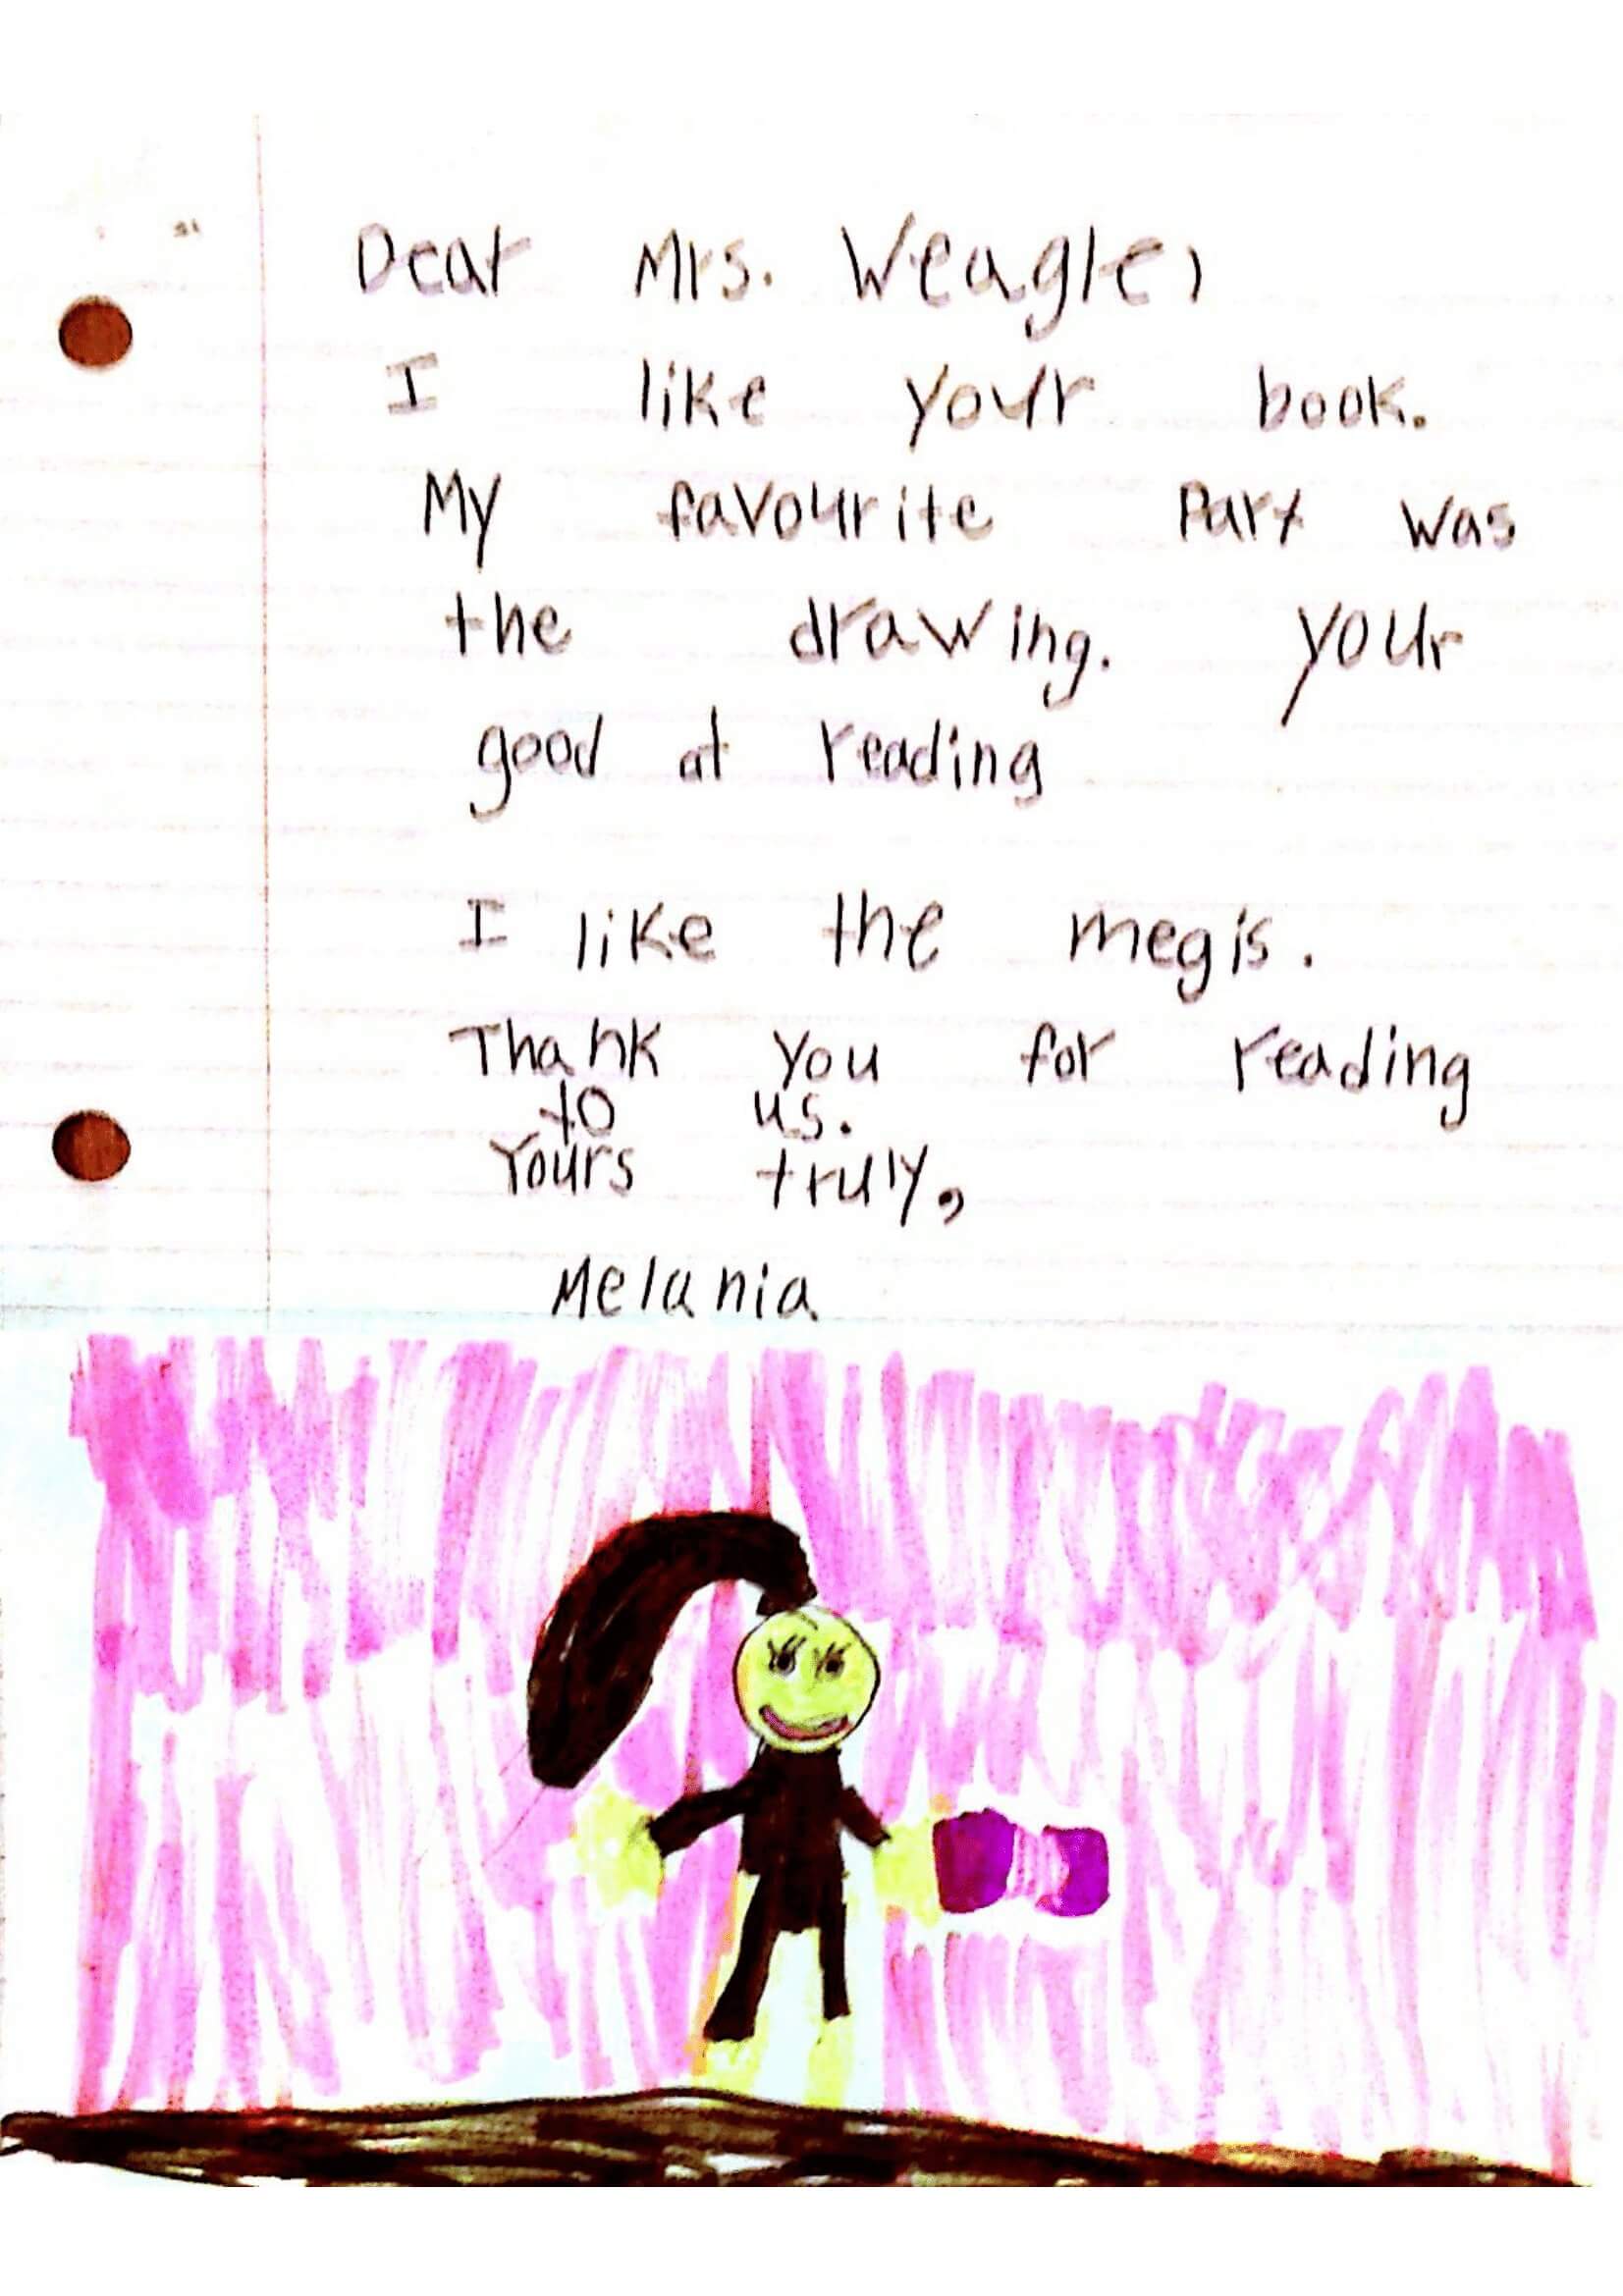 Dear Mrs. Weagle,
I like your book.
My favourite Part was
the drawing. your
good at reading
I like the megis.
Thank you for reading
to us.
Yours truly,
Melania